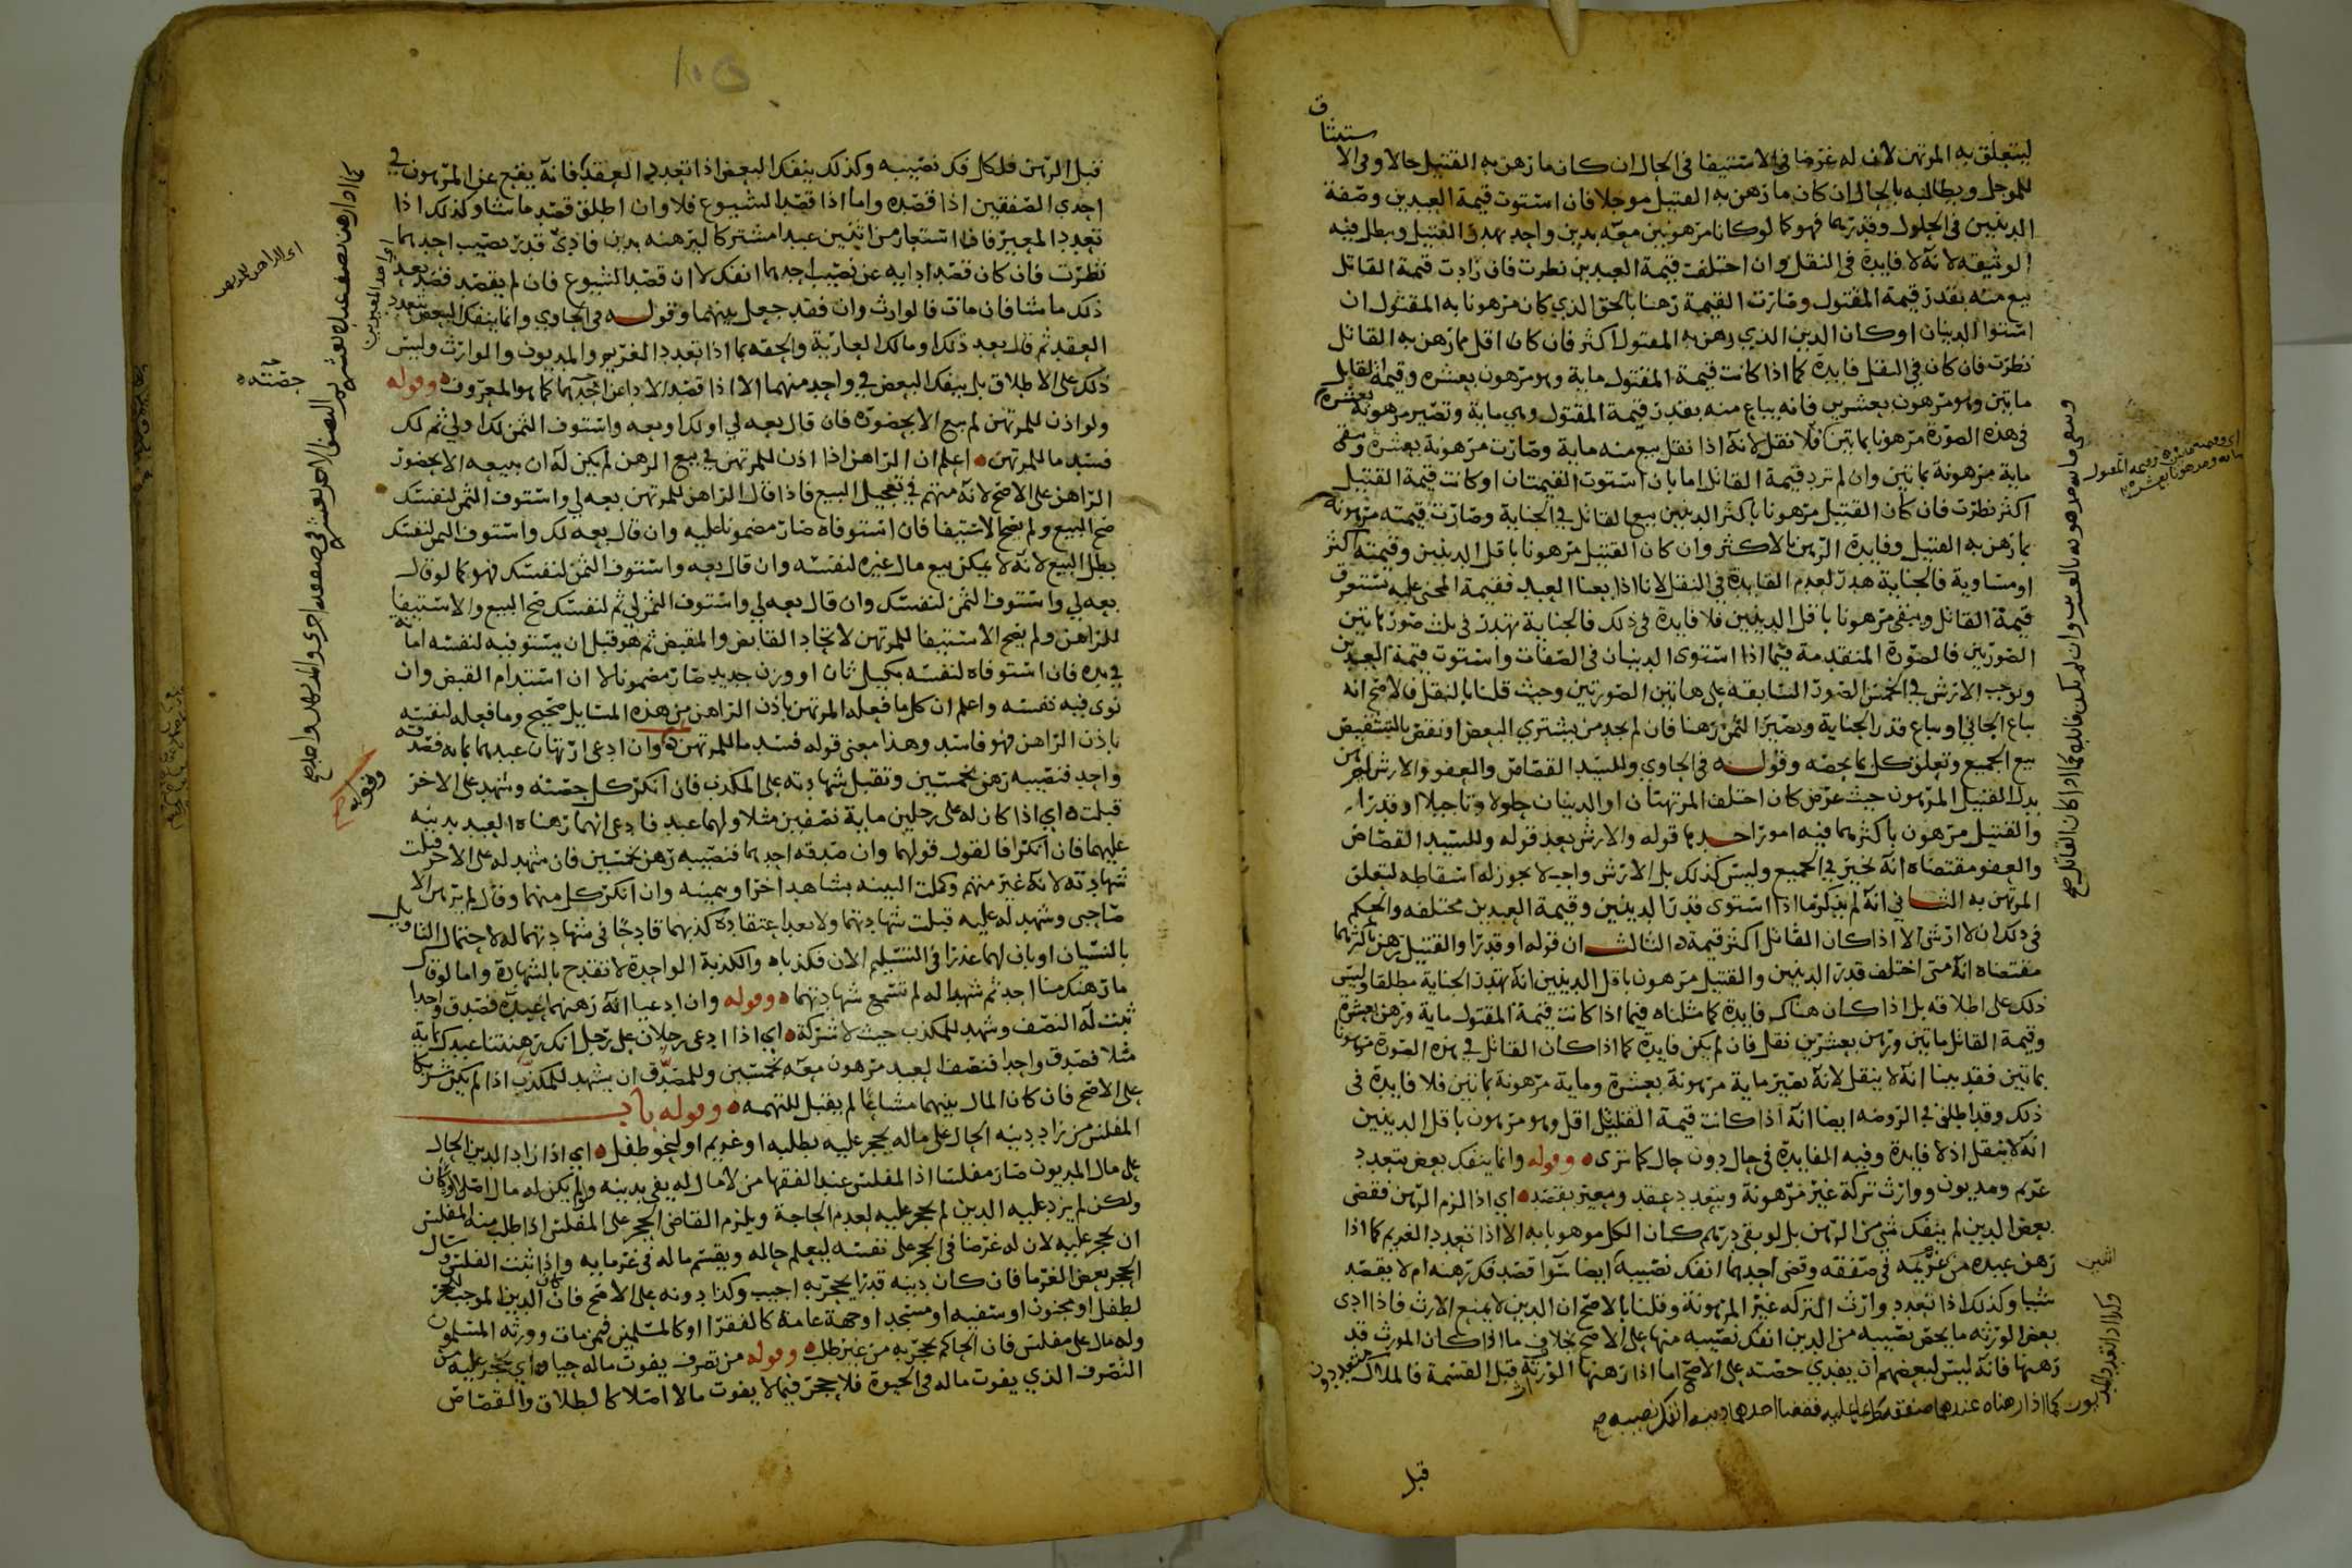 ليتعلق به المرتهن لان له غرضا في الاستيفا في الحال ان كان ما رهن به القتيل حالا وفي الا
ستيثاق
للموجل ويطالبه بالحال ان كان ما رهن به القتيل موجلا فان استوت قيمة العبدين وصفة
الدينين في الحلول وقدرهما فهو كما لو كانا مرهونين معه بدين واحد يهدر القتيل ويبطل فيه
الوثيقه لانه لا فايدة في النقل وان اختلفت قيمة العبدين نظرت فان زادت قيمة القاتل
بيع منه بقدر قيمة المقتول وصارت القيمة رهنا بالحق الذي كان مرهونا به المقتول ان
استوا الدينان او كان الدين الذي رهن به المقتول اكثر فان كان اقل مما رهن به القاتل
نظرت فان كان في النقل فايدة كما اذا كانت قيمة المقتول ماية وهو مرهون بعشره وقيمة القاتل
مايتين وهو مرهون بعشرين فانه يباع منه بقدر قيمة المقتول وهي ماية وتصير مرهونة بعشرة
في هذه الصورة مرهونا بمايتين فلا نقل لانه اذا نقل بيع منه ماية وصارت مرهونة بعشرة وبقي
ماية مرهونة بمايتين وان لم تزد قيمة القاتل اما بان استوت القيمتان او كانت قيمة القتيل
اكثر نظرت فان كان القتيل مرهونا باكثر الدينين بيع القاتل في الجناية وصارت قيمته مرهونة
بما رهن به القتيل وفايدة الرهن بالاكثر وان كان القتيل مرهونا باقل الدينين وقيمته اكثر
او مساوية فالجناية هدر لعدم الفايدة في النقل لانا اذا بعنا العبد فقيمة المجني عليه تستغرق
قيمة القاتل ويبقى مرهونا باقل الدينين فلا فايدة في ذلك فالجناية تهدر في ثلث صور مايتين
الصورتين فالصورة المتقدمة فيما اذا استوى الدينان في الصفات واستوت قيمة العبدين
ويوجب الارش في الخمس الصور السابقه على هاتين الصورتين وحيث قلنا بالنقل فالاصح انه
يباع الجاني او يباع قدر الجناية ويصير الثمن رهنا فان لم يجد من يشتري البعض او نقص بالتشقيص
بيع الجميع وتعلق كل بما يخصه وقوله في الحاوي وللسيد القصاص والعفو والارش رهن
بدل القتيل المرهون حيث غرض كان اختلف المرتهنان او الدينان حلولا وتاجيلا او قدرا
والقتيل مرهون باكثرهما فيه امور احدها قوله والارش بعد قوله وللسيد القصاص
والعفو مقتضاه انه يخير في الجميع وليس كذلك بل الارش واجب لا يجوز له اسقاطه لتعلق
المرتهن به الثاني انه لم يذكر ما اذا استوى قدر الدينين وقيمة العبدين مختلفه والحكم
في ذلك ان لا ارش الا اذا كان القاتل اكثر قيمة الثالث ان قوله او قدرا والقتيل رهن باكثرهما
مقتضاه انه متى اختلف قدر الدينين والقتيل مرهون باقل الدينين انه تهدر الجناية مطلقا وليس
ذلك على اطلاقه بل اذا كان هناك فايدة كما مثلناه فيما اذا كانت قيمة المقتول ماية ورهن بعشرة
وقيمة القاتل مايتين ورهن بعشرين نقل فان لم يكن فايدة كما اذا كان القاتل في هذه الصورة مرهونا
بمايتين فقد بينا انه لا ينقل لانه يصير ماية مرهونة بعشرة وماية مرهونة بمايتين فلا فايدة في
ذلك وقد اطلق في الروضه ايضا انه اذا كانت قيمة القتيل اقل وهو مرهون باقل الدينين
انه لا ينقل اذ لا فايدة وفيه الفايدة في حال دون حال كما ترى وقوله وانما ينفك بعض بتعدد
غريم ومديون ووارث تركة غير مرهونة وبتعدد عقد ومعير بقصد اي اذا لزم الرهن فقضى
بعض الدين لم ينفك شي من الرهن بل لو بقي درهم كان الكل مرهونا به الا اذا تعدد الغريم كما اذا
رهن عبده من غريميه في صفقه وقضى احدهما انفك نصيبه ايضا سوا قصد فك رهنه ام لا يقصد
شيا وكذلك اذا تعدد وارث التركه غير المرهونة وقلنا بالاصح ان الدين لا يمنع الارث فاذا ادى
بعض الورثه ما يخص نصيبه من الدين انفك نصيبه منها على الاصح بخلاف ما اذا كان المورث قد
رهنها فانه ليس لبعضهم ان يفدي حصته على الاصح اما اذا رهنها الورثة قبل القسمة فالملاك متعددون
وكذا اذا تعدد المديون كما اذا رهناه عندهما صفقه بما عليه فقضا احدهما دينه انفك نصيبه صح
اثنين
قبل
قبل الرهن فلكل فك نصيبه وكذلك ينفك البعض اذا تعدد العقد فانه يقع عن المرهون في
احدى الصفقتين اذا قصده واما اذا قصد الشيوع فلا وان اطلق قصد ما شا وكذلك اذا
تعدد المعير فاذا استعار من اثنين عبدا مشتركا ليرهنه بدين فادى قدر نصيب احدهما
نظرت فان كان قصد ادايه عن نصيب احدهما انفك لا ان قصد الشيوع فان لم يقصد قصد بعد
ذلك ما شا فان مات فالوارث وان فقد جعل بينهما وقوله في الحاوي وانما ينفك البعض بتعدد
العقد ثم قال بعد ذلك او مالك العارية والحقه بما اذا تعدد الغريم والمديون والوارث وليس
ذلك على الاطلاق بل ينفك البعض في واحد منهما الا اذا قصد الادا عن احدهما كما هو المعروف وقوله
ولو اذن للمرتهن لم يبع الا بحضوره فان قال بعه لي او لك او بعه واستوف الثمن لك او لي ثم لك
فسد ما للمرتهن اعلم ان الراهن اذا اذن للمرتهن في بيع الرهن لم يكن له ان يبيعه الا بحضور
الراهن على الاصح لانه متهم في تعجيل البيع فاذا قال الراهن للمرتهن بعه لي واستوف الثمن لنفسك
صح البيع ولم يصح الاستيفا فان استوفاه صار مضمونا عليه وان قال بعه لك واستوف الثمن لنفسك
بطل البيع لانه لا يمكن بيع مال غيره لنفسه وان قال بعه واستوف الثمن لنفسك فهو كما لو قال
بعه لي واستوف الثمن لنفسك وان قال بعه لي واستوف الثمن لي ثم لنفسك صح البيع والاستيفا
للراهن ولم يصح الاستيفا للمرتهن لاتحاد القابض والمقبض ثم هو قبل ان يستوفيه لنفسه امانة
في يده فان استوفاه لنفسه بكيل ثان او وزن جديد صار مضمونا لا ان استدام القبض وان
نوى فيه نفسه واعلم ان كل ما فعله المرتهن باذن الراهن من هذه المسايل صحيح وما فعله لنفسه
باذن الراهن فهو فاسد وهذا معنى قوله فسد ما للمرتهن وان ادعى ارتهان عبدهما بمايه فصدقه
واحد فنصيبه رهن بخمسين وتقبل شهادته على المكذب فان انكر كل حصته وشهد على الاخر
قبلت اي اذا كان له على رجلين ماية نصفين مثلا ولهما عبد فادعى انهما رهناه العبد بدينه
عليهما فان انكرا فالقول قولهما وان صدقه احدهما فنصيبه رهن بخمسين فان شهد له على الاخر قبلت
شهادته لانه غير متهم وكملت البينه بشاهد اخر او يمينه وان انكر كل منهما وقال لم يرهن الا
صاحبي وشهد له عليه قبلت شهادتهما ولا يعد اعتقاده كذبهما قادحا في شهادتهما له لاحتمال التاويل
بالنسيان او بان لهما عذرا في التسليم الان فكذباه والكذبة الواحدة لا تقدح بالشهادة واما لو قال
ما رهنك منا احد ثم شهدا له لم تسمع شهادتهما وقوله وان ادعيا انه رهنهما عبده فصدق واحدا
ثبت له النصف وشهد للمكذب حيث لا شركة اي اذا ادعى رجلان على رجل انك رهنتنا عبدك بماية
مثلا فصدق واحدا فنصف العبد مرهون معه بخمسين وللمصدق ان يشهد للمكذب اذا لم يكن شريكا
على الاصح فان كان المال بينهما مشاعا لم يقبل للتهمه وقوله باب
المفلس من زاد دينه الحال على ماله يحجر عليه بطلبه او غريم او لنحو طفل اي اذا زاد الدين الحال
على مال المديون صار مفلسا اذ المفلس عند الفقها من لا مال له يفي بدينه ولو لم يكن له مال اصلا او كان
ولكن لم يزد عليه الدين لم يحجر عليه لعدم الحاجة ويلزم القاضي الحجر على المفلس اذا طلب منه المفلس
ان يحجر عليه لان له غرضا في الحجر على نفسه ليعلم حاله ويقسم ماله في غرمايه واذا ثبت الفلس وسال
الحجر بعض الغرما فان كان دينه قدرا يحجر به اجيب وكذا دونه على الاصح فان كان الدين الموجب للحجر
لطفل او مجنون او سفيه او مسجد او جهة عامة كالفقرا او كالمسلمين فيمن مات وورثه المسلمون
وله مال على مفلس فان الحاكم يحجر به من غير طلب وقوله من تصرف يفوت ماله حيا اي يحجر عليه من
التصرف الذي يفوت ماله في الحيوة فلا حجر فيما لا يفوت مالا اصلا كالطلاق والقصاص